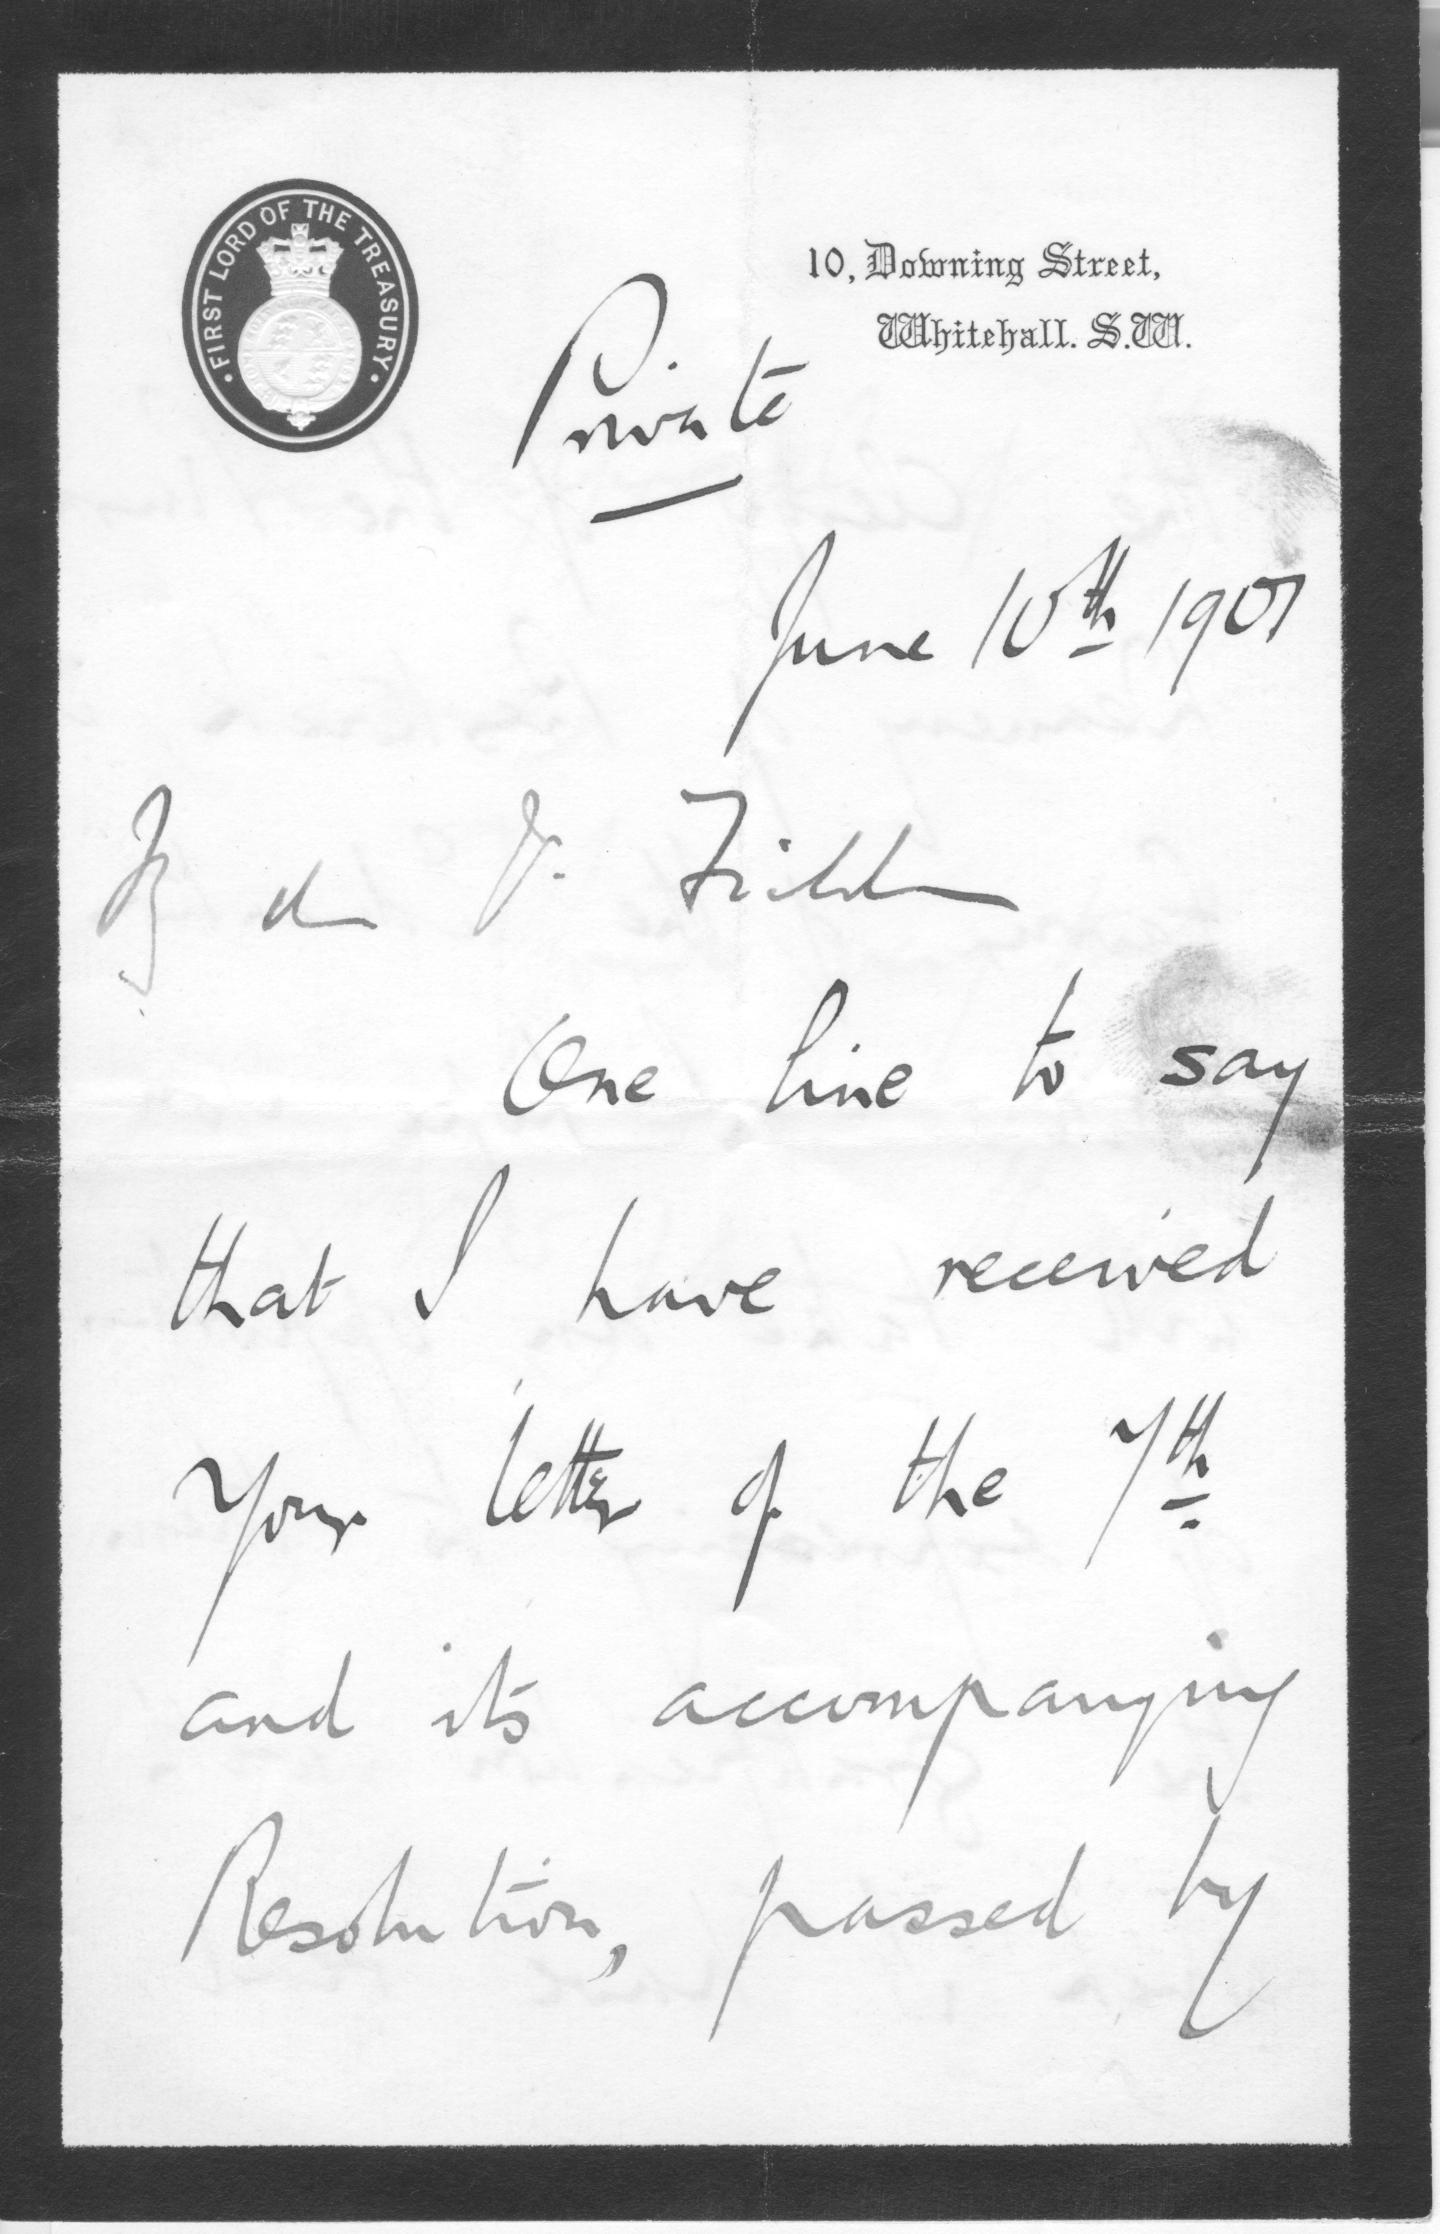 FIRST LORD OF THE TREASURY
10, Downing Street,
Whitehall. S.W.
Private
June 10th 1901
One line to say
that I have received
your letter of the 7th
and its accompanying
Resolution, passed by